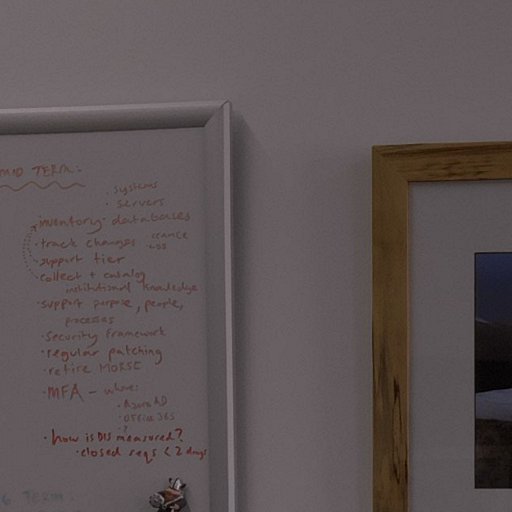 TERM.
systems
· servers
inventory · databases
· track changes
· support tier
· collect + catalog
institutional knowledge
· support purpose, people,
processes
· Security framework
· regular patching
· retire MORSE
· MFA - where:
· Azure AD
· Office 365
· ?
· how is DIS measured?
· closed reqs < 2 days
TERM.